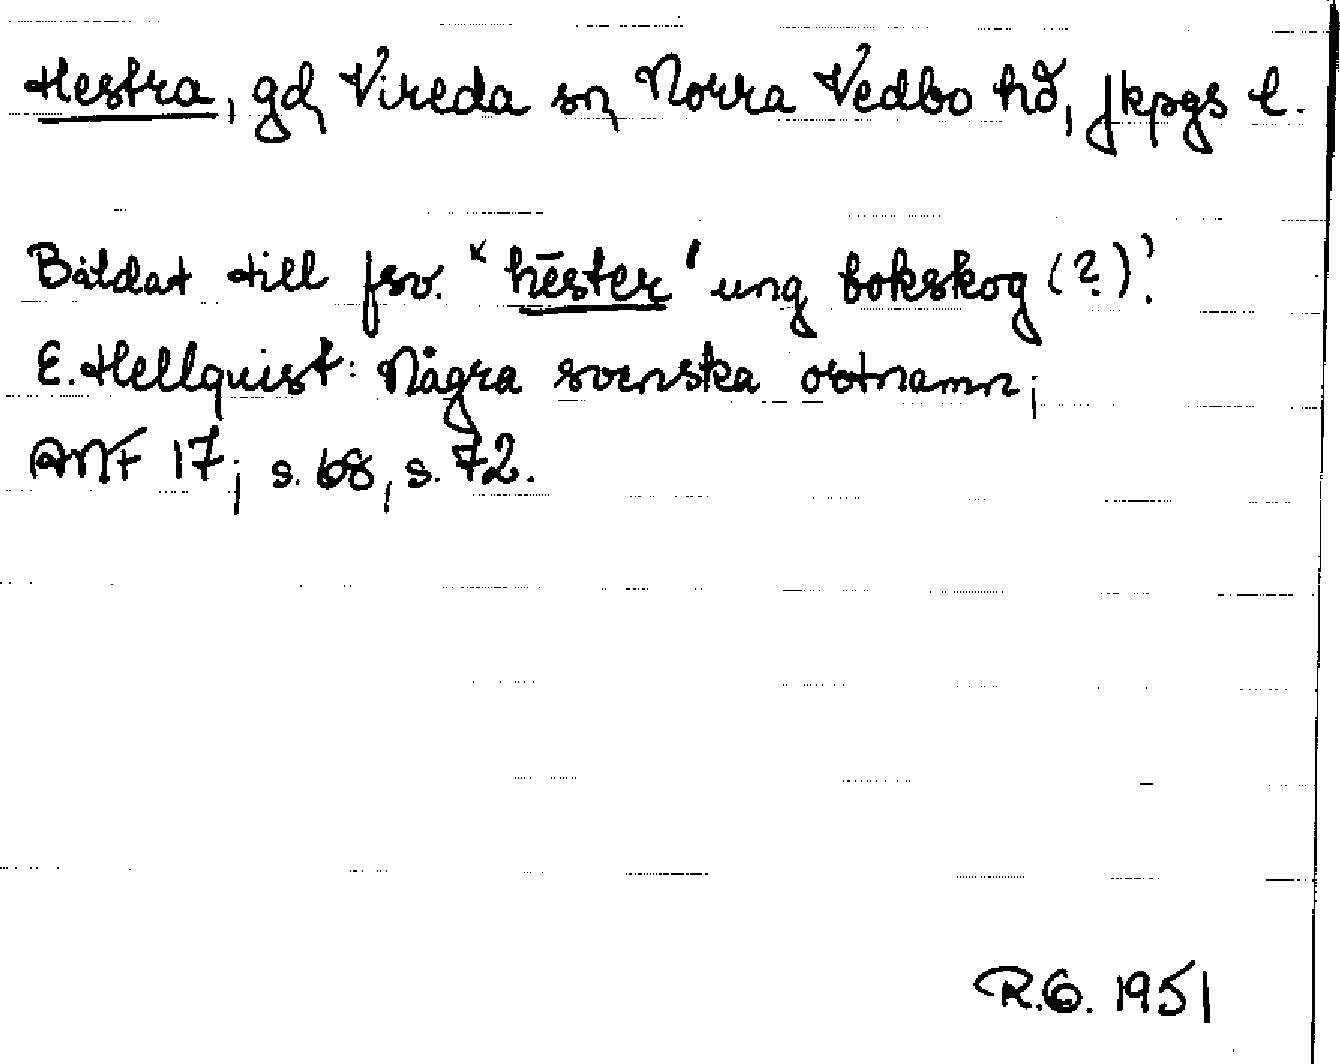 Hestra, gd, Vireda sn, Norra Vedbo hd, Jkpgs l.
Bildat till fsv. *hēster 'ung bokskog (?)'.
E. Hellquist: Några svenska ortnamn;
ANF 17; s. 68, s. 72.
R.G. 1951